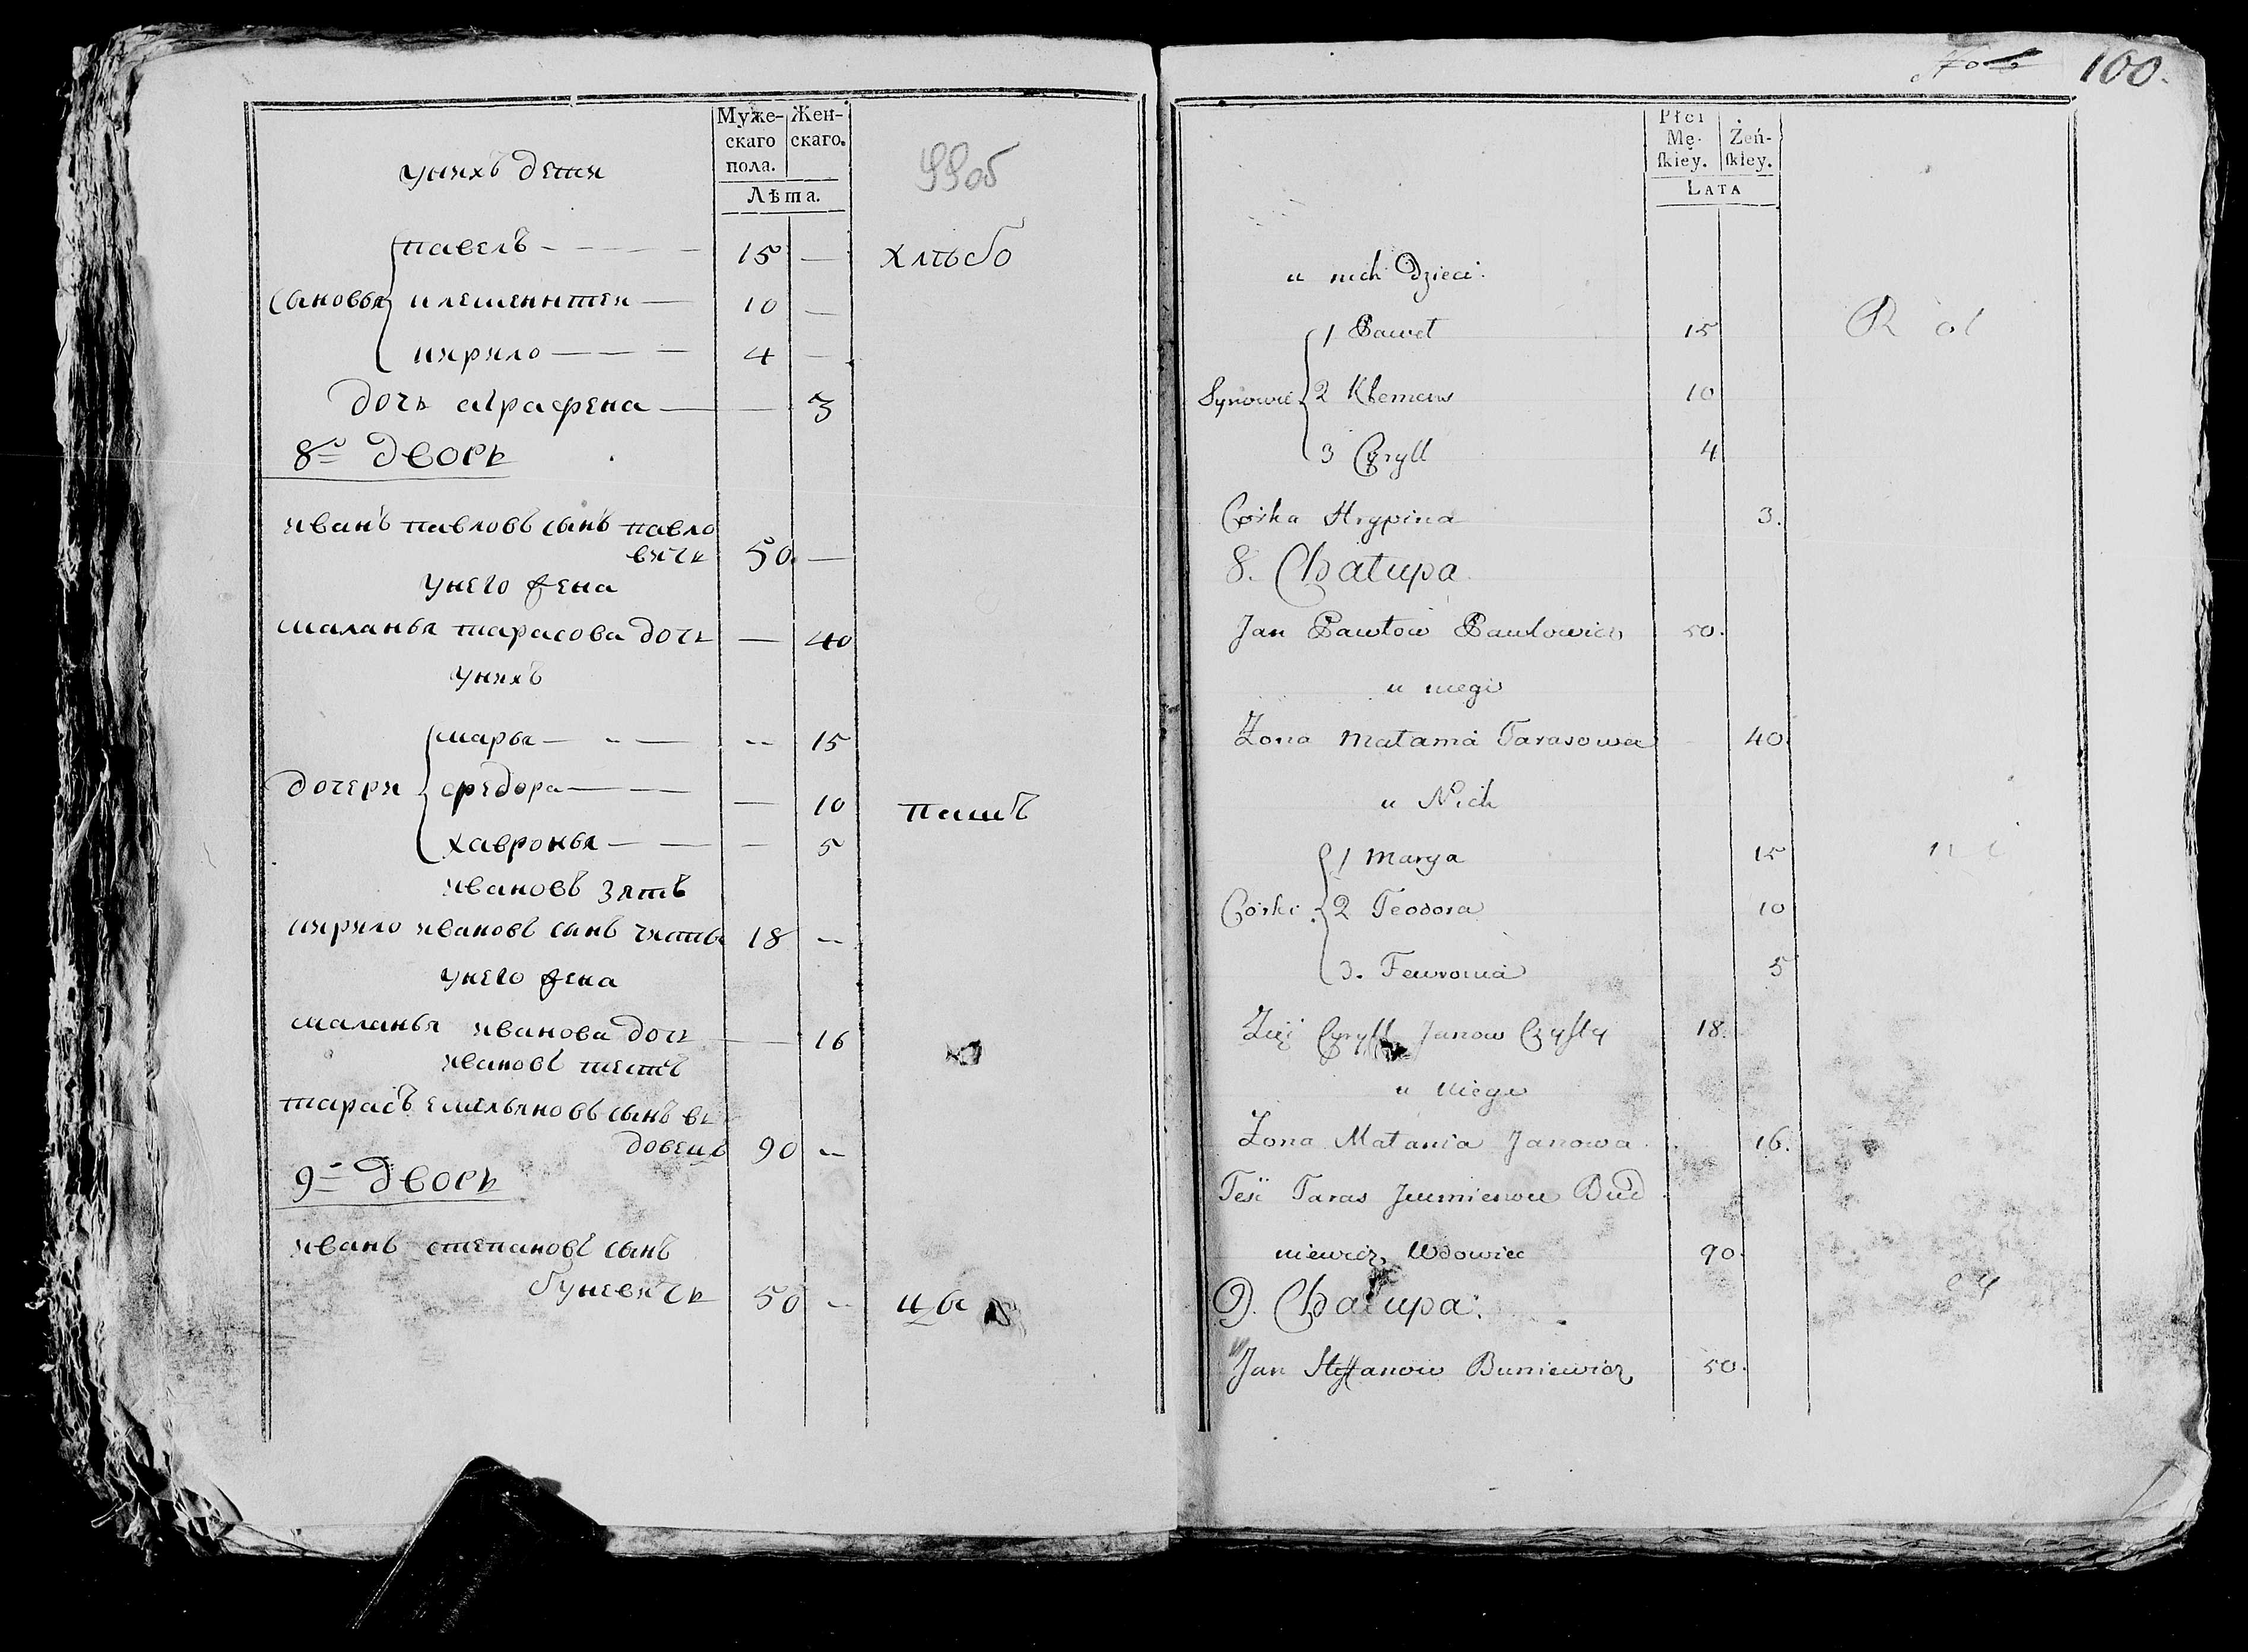 Муже-
скаго
пола.
Жен-
скаго.
Лѣта.
99об
унихъ дети
сыновья
павелъ 15 —
клементей — 10 —
кирило — 4 —
дочь аграфена — — 3
8й дворъ
иванъ павловъ сынъ павло
вичь 50. —
унего жена
маланья тарасова дочь — 40
унихъ
дочери
марья — -- 15
федора — — 10
хавронья — — 5
ивановъ зять
кирило ивановъ сынъ чисты 18 --
унего жена
маланья иванова дочь — 16
ивановъ тесть
тарасъ емельяновъ сынъ в
довецъ 90 --
9й дворъ
иванъ степановъ сынъ
буневичь 50 --
хлѣбо
пашъ
цы
100.
Płci
Mę-
ſkiey.
Żeń-
ſkiey.
LATA
u nich Dzieci
Synowie
1 Paweł 15
2 Klemens 10
3 Cyryll 4
Corka Hrypina 3.
8. Chałupa
Jan Pawłow Pawłowicz 50.
u niego
Żona Małania Tarasowa 40.
u Nich
Corki
1 Marya 15
2 Teodora 10
3. Fewronia 5
Zięć Cyryll Janow Czysty 18.
u niego
Żona Małania Janowa 16.
Teść Taras
niewicz Wdowiec 90.
9. Chałupa.
Jan Steffanow Buniewicz 50.
R ol
ni